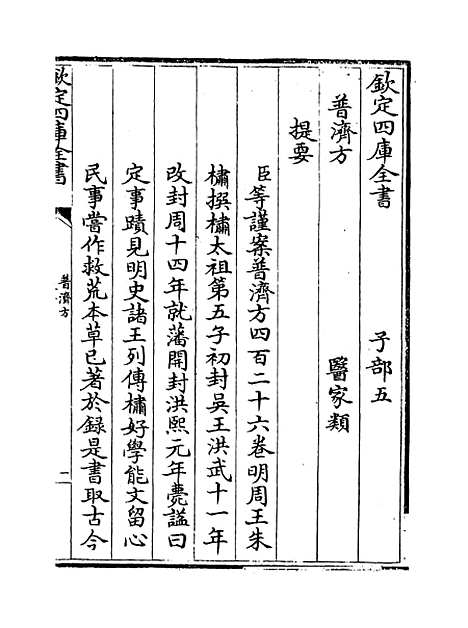 欽定四庫全書 子部五
普濟方 醫家類
提要
臣等謹案普濟方四百二十六卷明周王朱
橚撰橚太祖第五子初封吳王洪武十一年
改封周十四年就藩開封洪熙元年薨諡曰
定事蹟見明史諸王列傳橚好學能文留心
民事嘗作救荒本草已著於録是書取古今
欽定四庫全書
普濟方
二